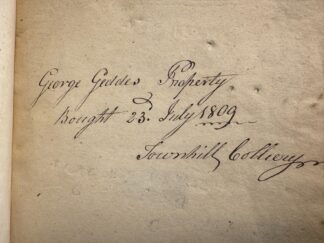 George Geddes Property
Bought 23. July 1809
Townhill Colliery